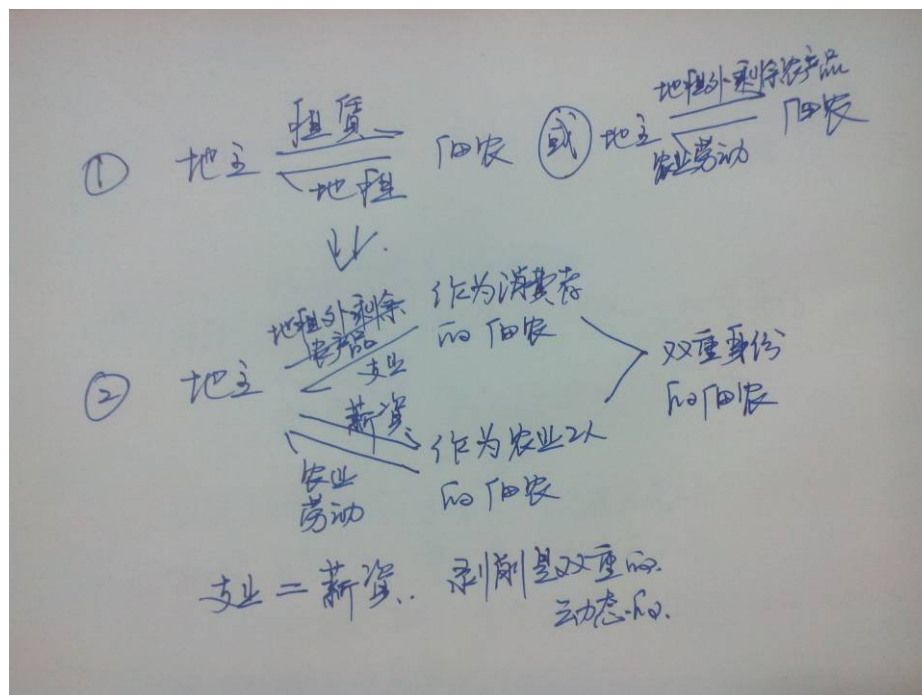 ① 地主 租赁 地租 佃农 或 地主 地租外剩余农产品 农业劳动 佃农
② 地主
地租外剩余
农产品
支出
作为消费者
的佃农
薪资
农业
劳动
作为农业工人
的佃农
双重身份
的佃农
支出=薪资. 剥削是双重的
动态的.